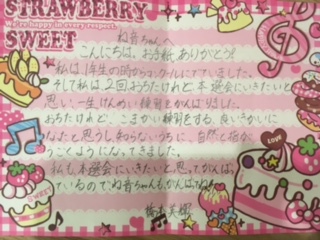 STRAWBERRY
We're happy in every respect.
SWEET
ね音ちゃんへ
こんにちは、お手紙ありがとう!
私は1年生の時からコンクールにでていました。
そして私は2回おちたけれど本選会にいきたいと
思い、一生けんめい練習をがんばりました。
おちたけれど、こまかい練習をする、良いきかいに
なったと思うし知らないうちに、自然と指が
うごくようになってきました。
私も本選会にいきたいと思ってがんばっ
ているのでね音ちゃんも、がんばってね
Love
SWEET